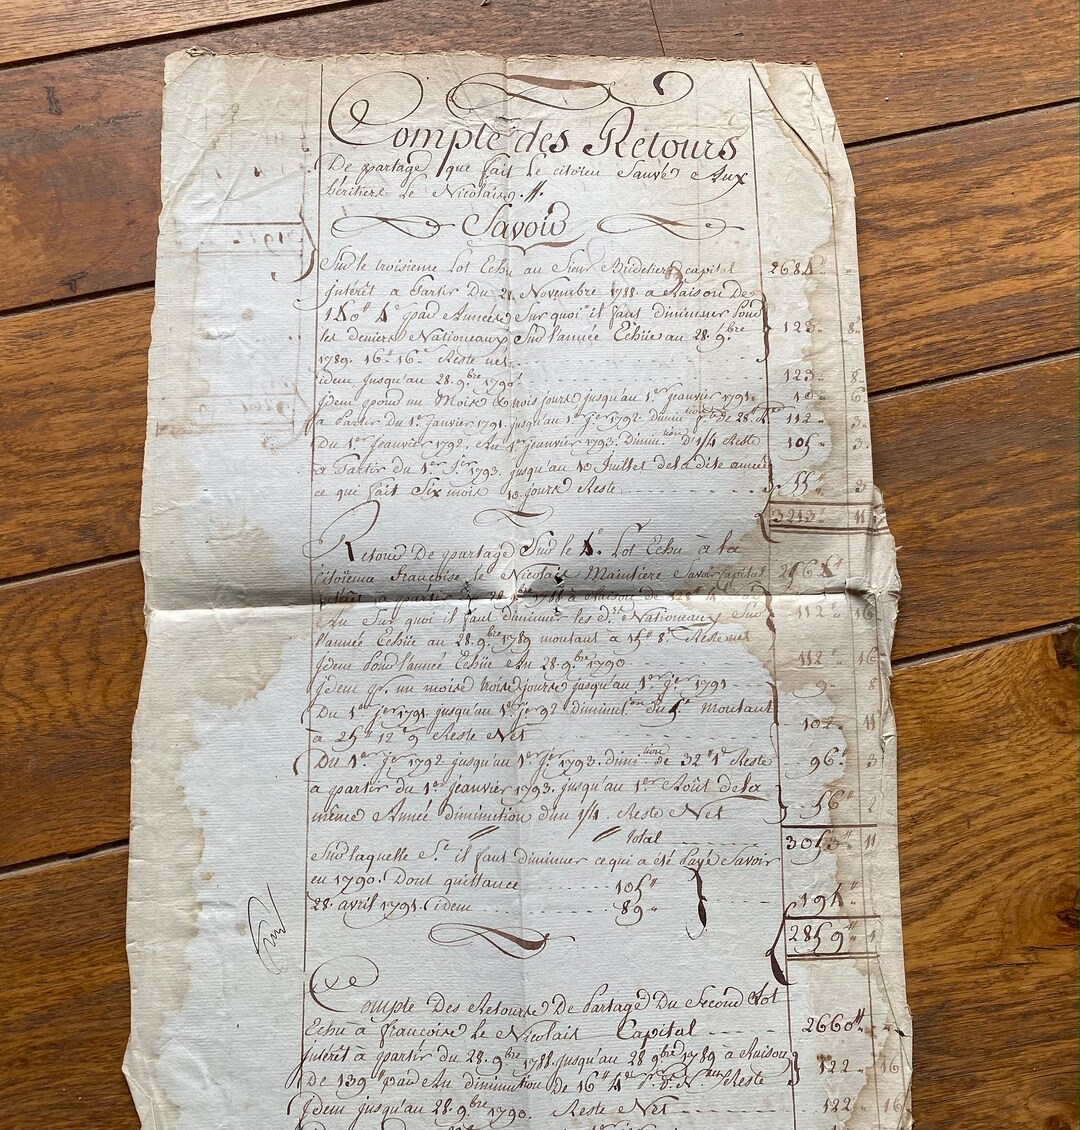 Compte des Retours
De partage que fait le citoïen Sauvé Aux
héritiers le Nicolais.
Savoir
Sur le troisieme Lot Echu au Sieur Brideliere capital 2684
jnterêt a Partir Du 28 Novembre 1788 a Raison De
140 4 par Année, Sur quoi il faut diminuer pour
les deniers Nationeaux Sur l'année Echüe au 28 9.bre 123 8
1789. 16 16 Reste net
idem jusqu'au 28. 9.bre 1790 123 8
jdem pour un Mois & trois jours jusqu'au 1er jeanvier 1791 6
a Partir Du 1er janvier 1791 jusqu'au 1er jer 1792 Diminution de 28 112 3
Du 1er Jeanvier 1792. Au 1er jeanvier 1793. Diminution d'1/4 Reste 105 3
a Partir du 1er jer 1793 jusqu'au 10 juillet de la dite année
ce qui fait Six mois 10 jours Reste 55 3
3213 11
Retour De partage Sur le 4e. Lot Echu à la
citoïenne françoise le Nicolais Maintiere Savoir Capital 2464
a Raison de
An Sur quoi il faut diminuer les Nationeaux Sur 112 16
l'année Echüe au 28. 9.bre 1789 montant a 15 8 Reste net
jdem Pour l'année Echüe Au 28. 9.bre 1790 112 16
jdem pr. un mois trois jours jusqu'au 1er jer 1791 9 8
Du 1er jer 1791 jusqu'au 1er jer 92 diminution du 5e montant
à 25 12 9 Reste Net 102 11
Du 1er jer 1792 jusqu'au 1er jer 1793. diminution de 32 1 Reste 96 3
a partir du 1er jeanvier 1793. jusqu'au 1er Août de la
même Année diminution d'un 1/4. Reste Net 56 2
total 3053 11
Sur laquelle Se. il faut diminuer ce qui a été Payé Savoir
en 1790. Dont quittance 105
28. avril 1791. idem 89 194
2859
Compte Des Retours De Partage Du Second Lot
Echu à françoise le Nicolais Capital 2660
jntérêt à partir du 28. 9.bre 1788 jusqu'au 28 9bre 1789 à Raison
De 139 par An diminution De 16 4 Reste 122 16
jdem jusqu'au 28. 9.bre 1790. Reste Net 122 16